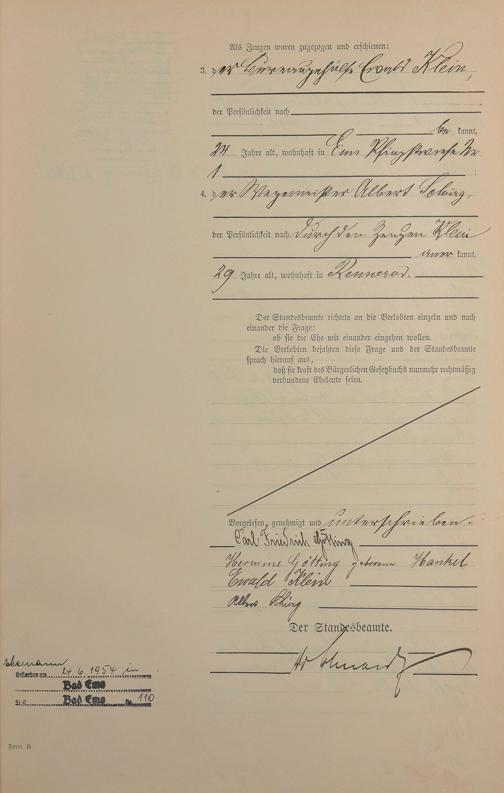 Als Zeugen waren zugezogen und erschienen:
3. der Bureaugehülfe Ewald Klein,
der Persönlichkeit nach
be kannt,
24 Jahre alt, wohnhaft in Ems Pfingstwiese Nr
1
4. der Wegemeister Albert
der Persönlichkeit nach durch den Zeugen Klein
aner kannt,
29 Jahre alt, wohnhaft in Rennerod.
Der Standesbeamte richtete an die Verlobten einzeln und nach
einander die Frage:
ob sie die Ehe mit einander eingehen wollen.
Die Verlobten bejahten diese Frage und der Standesbeamte
sprach hierauf aus,
daß sie kraft des Bürgerlichen Gesetzbuchs nunmehr rechtmäßig
verbundene Eheleute seien.
Vorgelesen, genehmigt und unterschrieben.
Carl Friedrich Götting
Hermine Götting geborene Hankel
Ewald Klein
Albert
Der Standesbeamte.
Ehemann
Gestorben am 14.6.1954 in
Bad Ems
St.A. Bad Ems Nr. 110
Form. B